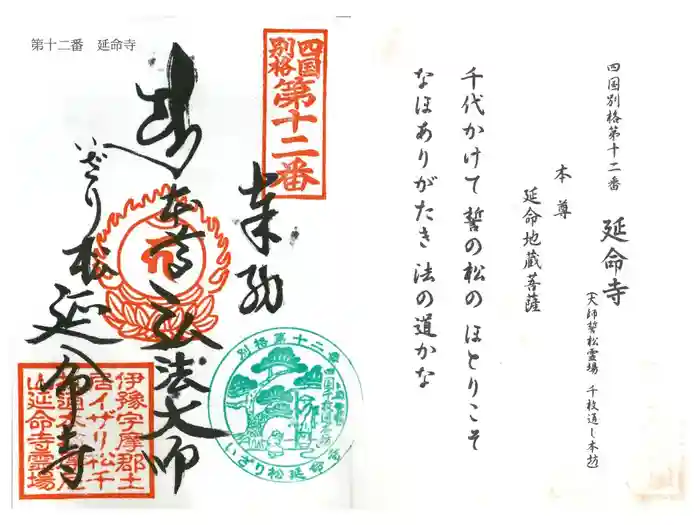 第十二番　延命寺
四国
別格
第十二番
奉納
本尊
弘法大師
いざり松
延命寺
別格第十二番
四国千枚通本坊
いざり松延命寺
伊豫宇摩郡土
居イザリ松千
山延命寺霊場
四国別格第十二番
延命寺
(大師誓松霊場　千枚通し本坊)
本尊
延命地蔵菩薩
千代かけて　誓の松の　ほとりこそ
なほありがたき　法の道かな